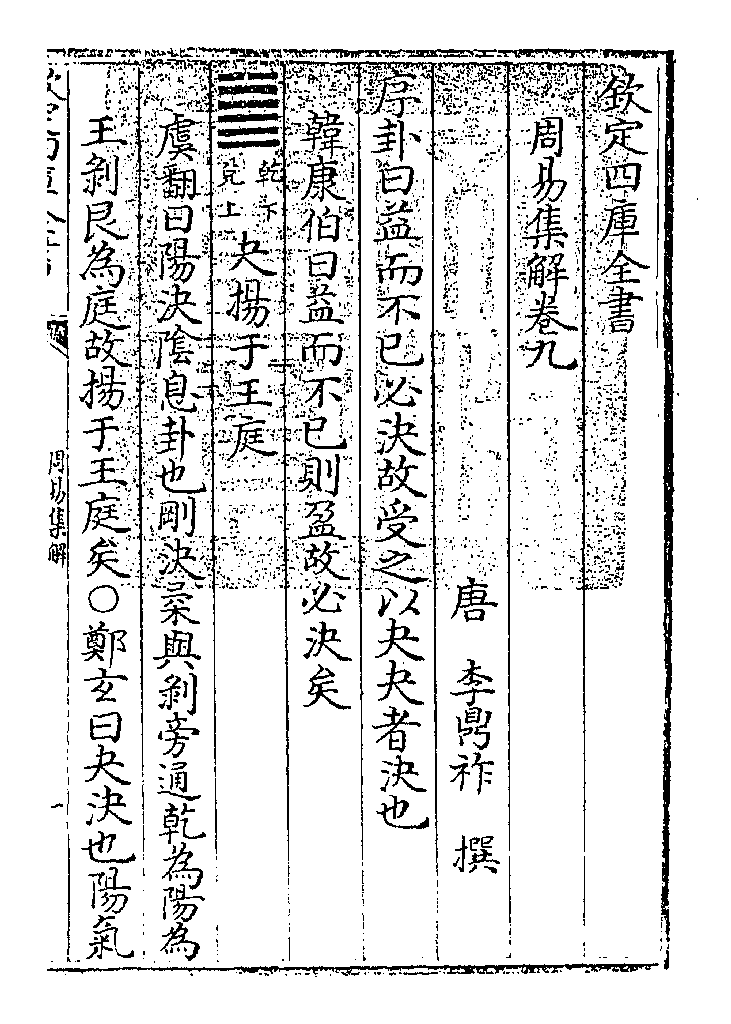 欽定四庫全書
周易集解卷九
唐 李鼎祚 撰
序卦曰益而不已必決故受之以夬夬者決也
韓康伯曰益而不已則盈故必決矣
䷪乾下兌上 夬揚于王庭
虞翻曰陽決陰息卦也剛決柔與剝旁通乾為陽為
王剝艮為庭故揚于王庭矣○鄭玄曰夬決也陽氣
周易集解
一